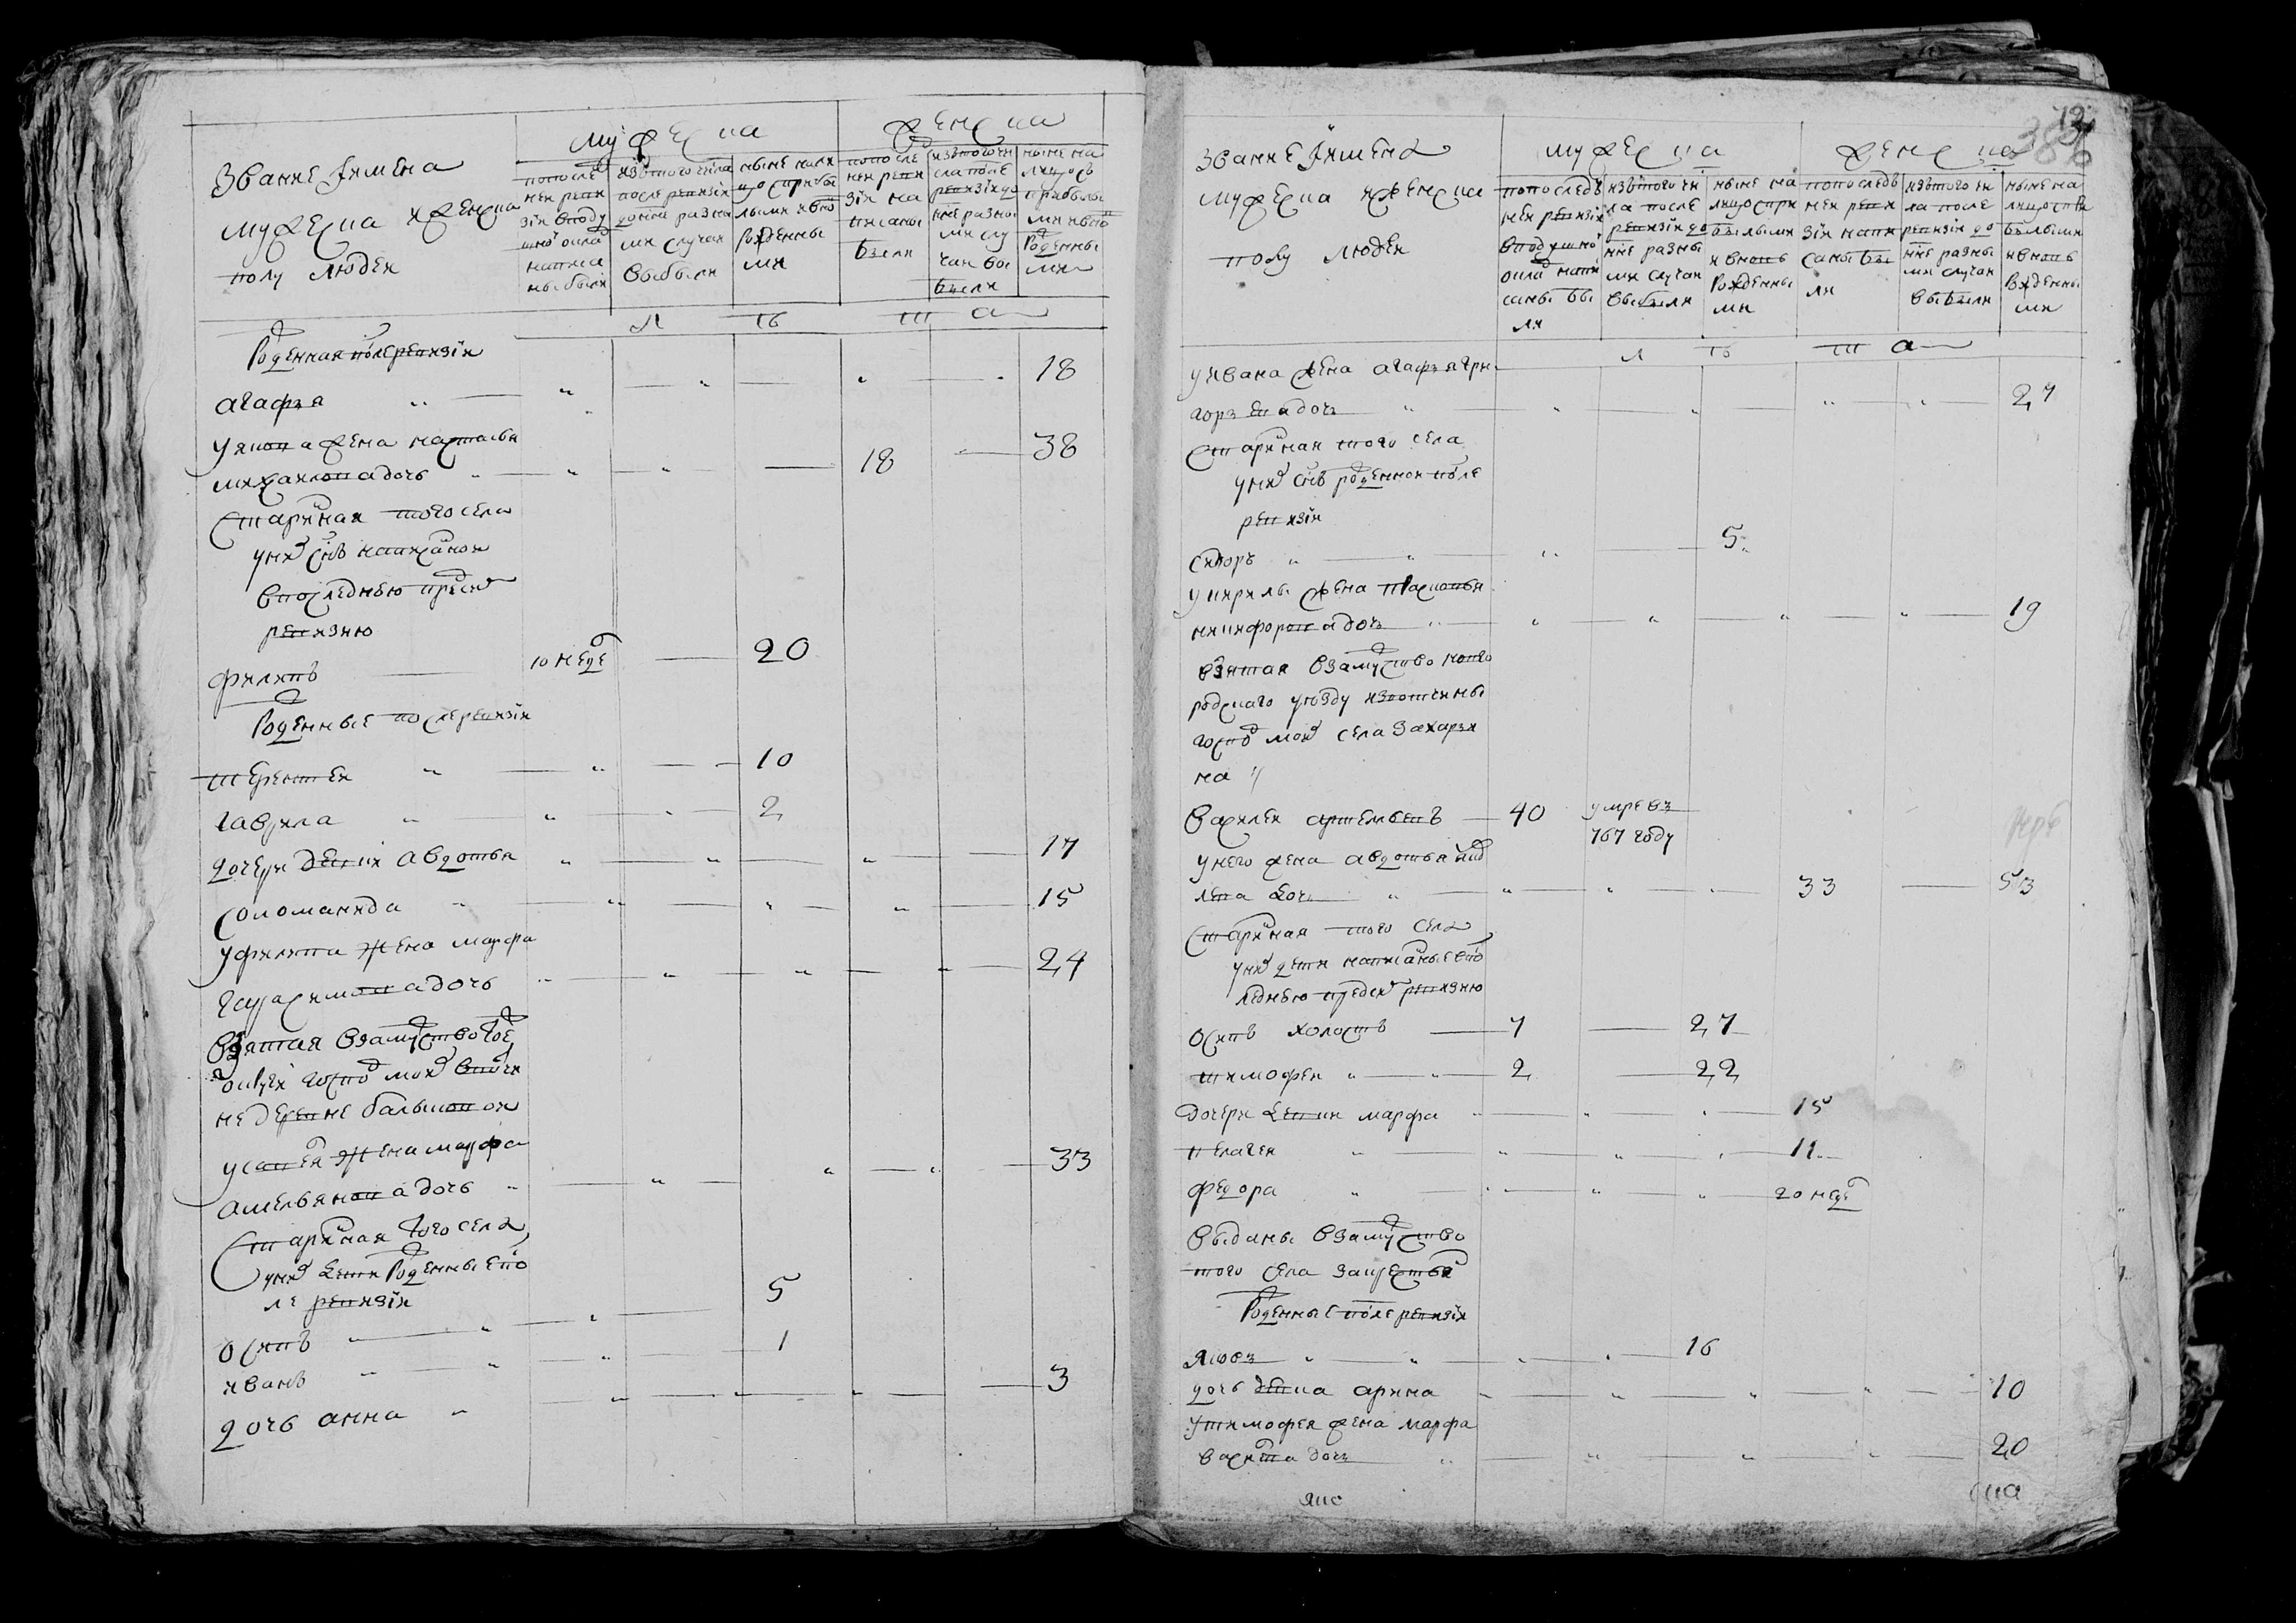 звание Їимена
мужеска иженска
полу людей
мужеска
женска
попосле
ней реви
зїи вподу
шнои окла
написа
ны были
изътого числа
после ревизїи
доныне разны
ми случаи
выбыли
ныне нали
цо сприбы
лыми ивно
рожденны
ми
попосле
ней реви
зїи на
писаны
были
изътого чи
сла после
ревизїи до
ныне разны
ми слу
чаи вы
были
ныне на
лицо съ
прибылы
ми ивно
рожденны
ми
лѣта
рожденная после ревизїи
агафья 18
уякова жена наталья
михаилова дочь 18 38
старинная тогосела
уних снъ написаной
впоследнею пред сею
ревизию
филипъ 10 неде 20
рожденные после ревизїи
терентей 10
гаврила 2
дочери девки авдотья 17
соломанида 15
уфилипа жена марфа
гарасимова дочь 24
взятая взамужство тое
округи господ моих вотчи
не деревне
усавея жена марфа
амельянова дочь 33
старинная того села
уних дети рожденные по
ле ревизїи
осипъ 5
иванъ 1
дочь анна 3
звание Їимена
мужеска иженска
полу людей
мужеска
женска
попоследъ
ней ревизїи
вподушно
окла напи
саны бы
ли
изътого чи
ла после
ревизїи до
ныне разны
ми случаи
выбыли
ныне на
лицо спри
былыми
ивновь
рожденны
ми
попоследъ
ней реви
зїи напи
саны бы
ли
изътого чи
ла после
ревизїи до
ныне разны
ми случаи
выбыли
ныне на
лицо сприб
былыми
ивновь
рожденны
ми
лѣта
уивана жена агафья гри
горьева дочь 27
старинная того села
уних снъ рожденной после
ревизїи
сидоръ 5
укирилы жена прасковья
никифорова дочь 19
взятая взамужство
родскаго уезду извотчины
господ моих села захарьи
на
василей артемьевъ 40 умре въ
767 году
унего жена авдотья
дочь 33 53
старинная того села
уних дети написаные по
леднею пред сею ревизию
осипъ холостъ 7 27
тимофей 2 22
дочери девки марфа 15
пелагея 11
федора 20 неде
выданы взамужство
того села закрестья
рожденные после ревизїи
яковъ 16
дочь девка арина 10
утимофея жена марфа
дочь 20